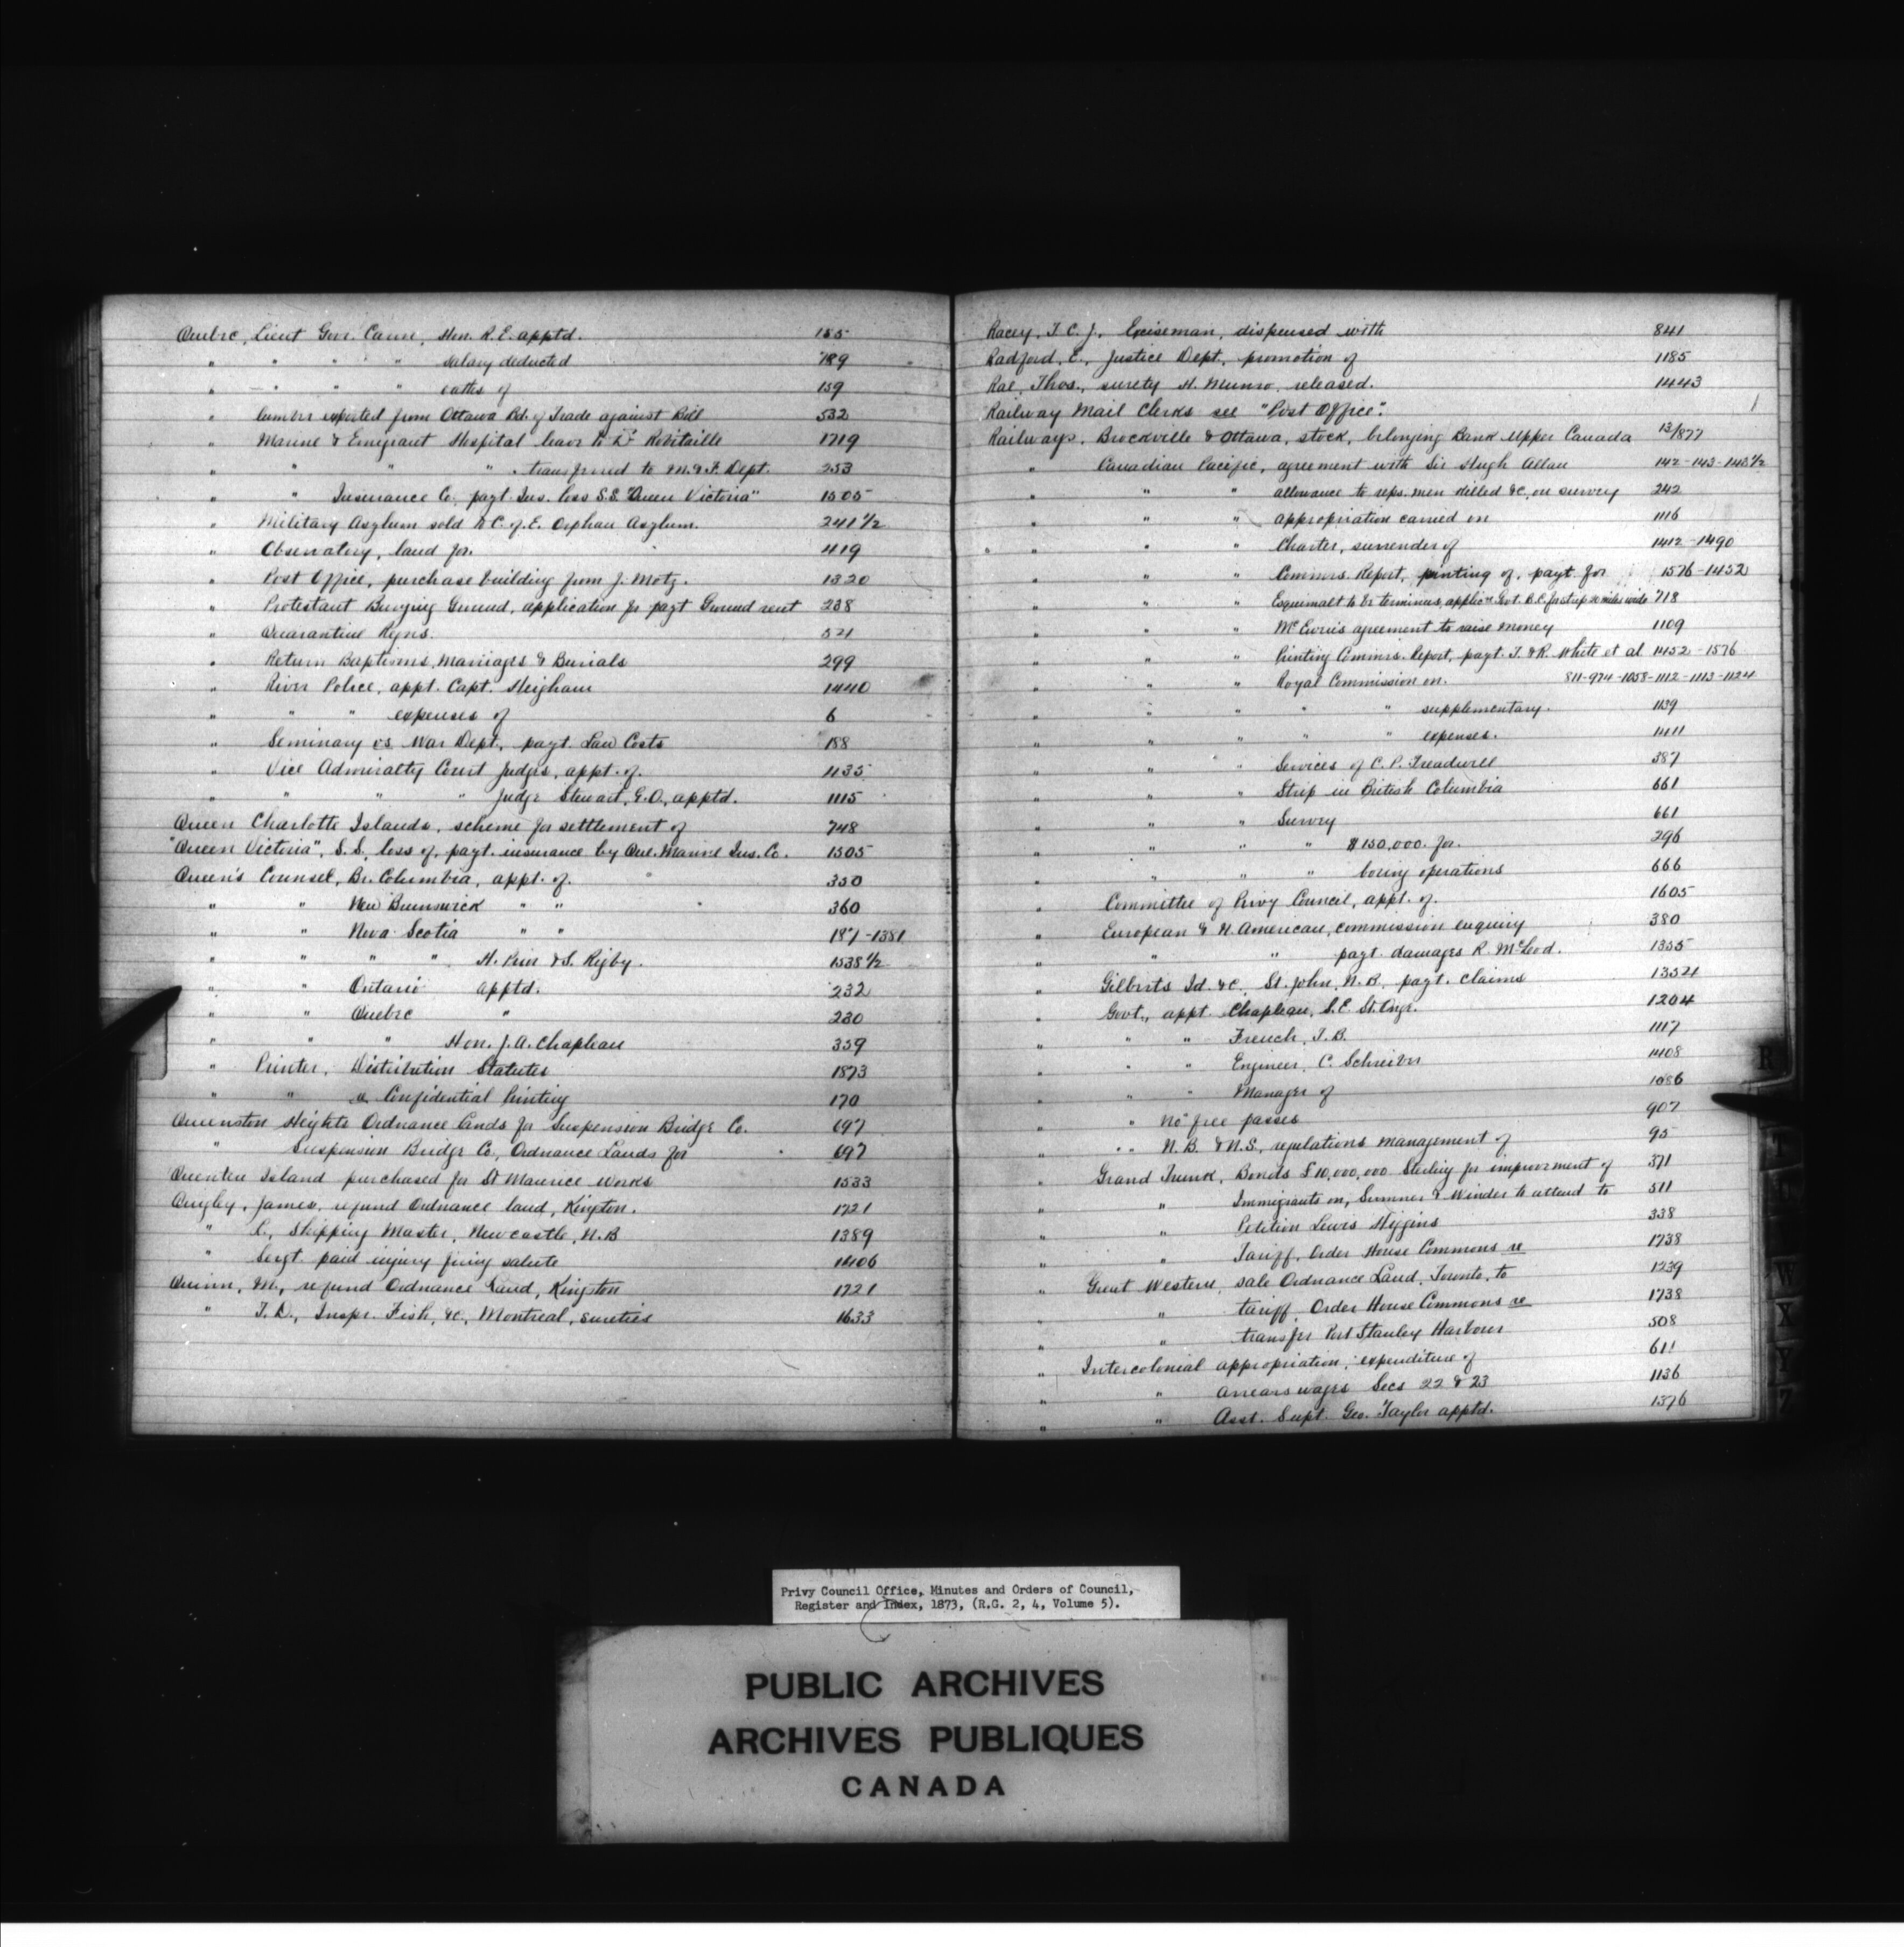 Quebec, Lieut Govr. Caron, Hon. R. E. apptd. 155
" " " " salary deducted 789
" " " " oaths of 159
" lumber exported from Ottawa Bd. of Trade against Bill 532
" Marine & Emigrant Hospital leave to Dr Robitaille 1719
" " " " transferred to M. & F. Dept. 253
" " Insurance Co. payt. Ins. loss S.S. "Queen Victoria" 1505
" Military Asylum sold to C. of E. Orphan Asylum. 241 1/2
" Observatory, land for. 419
" Post Office, purchase building from J. Motz. 1320
" Protestant Burying Ground, application for payt Ground rent 238
" Quarantine Regns. 521
" Return Baptisms, Marriages & Burials 299
" River Police, appt. Capt. Heigham 1440
" " " expenses of 6
" Seminary vs War Dept, payt. Law Costs 188
" Vice Admiralty Court Judges, appt. of. 1135
" " " " Judge Stewart, G.O., apptd. 1115
Queen Charlotte Islands, scheme for settlement of 748
"Queen Victoria", S.S. loss of, payt. insurance by Que. Marine Ins. Co. 1505
Queen's Counsel, Br. Columbia, appt. of. 350
" " New Brunswick " " 360
" " Nova Scotia " " 187-1381
" " " " H. Pineo & S. Rigby. 1538 1/2
" " Ontario apptd. 232
" " Quebec " 230
" " " Hon. J. A. Chapleau 359
" Printer, Distribution Statutes 1873
" " " Confidential Printing 170
Queenston Heights Ordnance Lands for Suspension Bridge Co. 697
" Suspension Bridge Co, Ordnance Lands for 697
Quenten Island purchased for St Maurice works 1533
Quigley, James, refund Ordnance land, Kingston. 1721
" C., Shipping Master, Newcastle, N.B 1389
" Sergt paid injury firing salute 1406
Quinn, M., refund Ordnance Land, Kingston 1721
" T. D., Inspr. Fish, &c, Montreal, sureties 1633
Racey, T. C. J., Exciseman, dispensed with 841
Radford, E., Justice Dept, promotion of 1185
Rae, Thos., surety H. Munro, released. 1443
Railway Mail Clerks see "Post Office".
Railways, Brockville & Ottawa, stock, belonging Bank Upper Canada 13/877
" Canadian Pacific, agreement with Sir Hugh Allan 142-143-143 1/2
" " " allowance to reps. men killed &c, on survey 242
" " " appropriation carried on 1116
" " " Charter, surrender of 1412-1490
" " " Commrs Report, printing of, payt. for 1576-1452
" " " Esquimalt to be terminus, applicn Govt. B.C. for strip 20 miles wide 718
" " " McEwen's agreement to raise money 1109
" " " Printing Commrs. Report, payt. T. & R. White et al 1452-1576
" " " Royal Commission on. 811-974-1058-1112-1113-1124
" " " " " supplementary. 1139
" " " " " expenses. 1411
" " " Services of C. P. Treadwell 387
" " " Strip in British Columbia 661
" " " Survey 661
" " " " $150,000. for. 296
" " " " boring operations 666
" Committee of Privy Council, appt. of. 1605
" European & N. American, commission enquiry 380
" " " payt. damages R. McLeod. 1355
" Gilberts Id. &c, St. John, N.B, payt. claims 1354
" Govt., appt. Chapleau, S.E. St. Onge. 1204
" " " French, T. B. 1117
" " " Engineer, C. Schreiber 1408
" " " Manager of 1086
" " no free passes 907
" " N.B. & N.S., regulations management of 95
" Grand Trunk, Bonds £10,000,000 Sterling for improvement of 371
" " Immigrants on, Sumner & Winder to attend to 511
" " Petition Lewis Higgins 338
" " Tariff, Order House Commons re 1738
" Great Western, sale Ordnance Land, Toronto, to 1239
" " tariff, Order House Commons re 1738
" " transfer Port Stanley Harbour 508
" Intercolonial appropriation, expenditure of 611
" " arrears wages Secs 22 & 23 1136
" " Asst. Supt. Geo. Taylor apptd. 1376
R
T
W
X
Y
Z
Privy Council Office, Minutes and Orders of Council,
Register and Index, 1873, (R.G. 2, 4, Volume 5).
PUBLIC ARCHIVES
ARCHIVES PUBLIQUES
CANADA